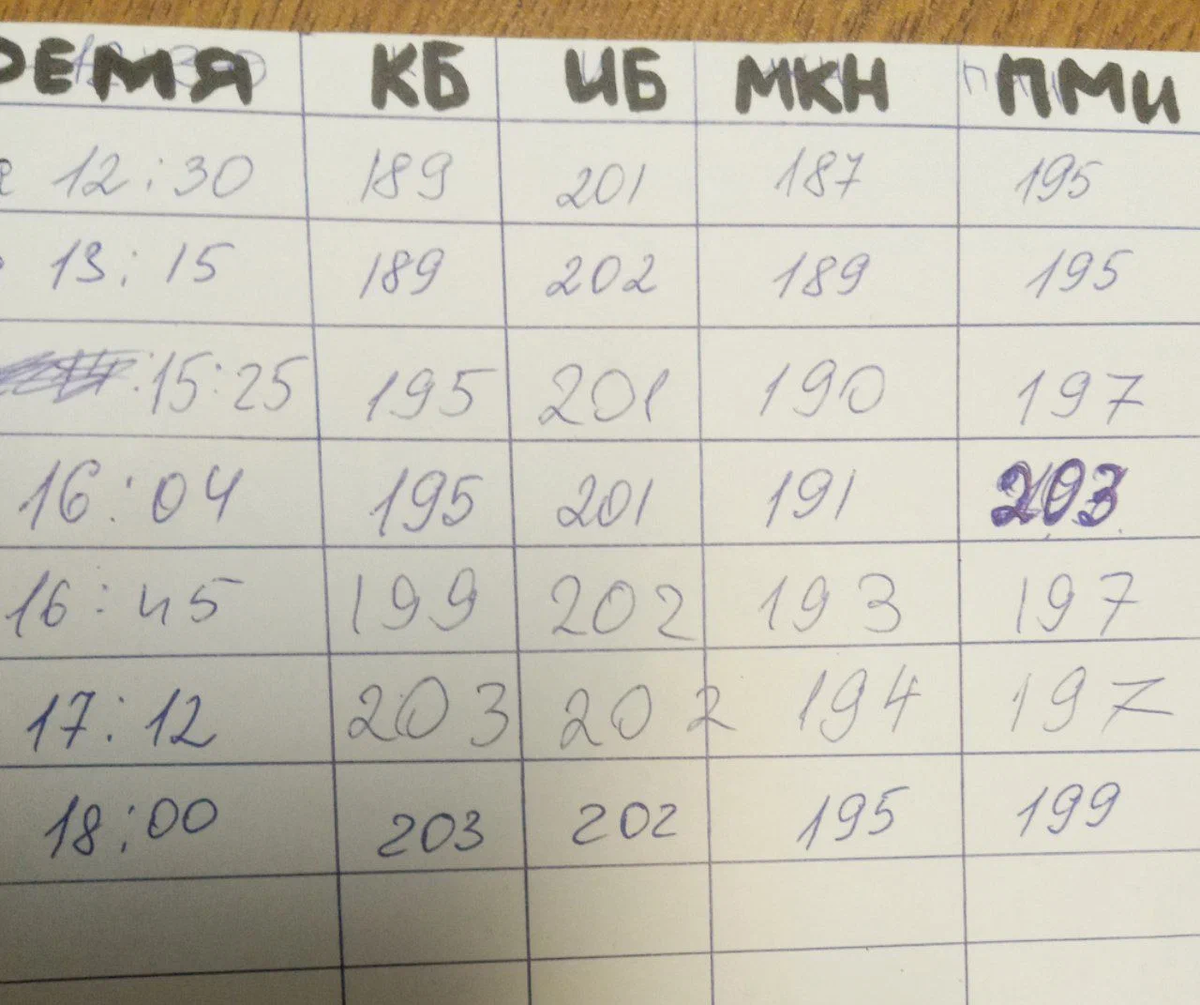 РЕМЯ КБ ИБ МКН ПМИ
12:30 189 201 187 195
13:15 189 202 189 195
15:25 195 201 190 197
16:04 195 201 191 203
16:45 199 202 193 197
17:12 203 202 194 197
18:00 203 202 195 199